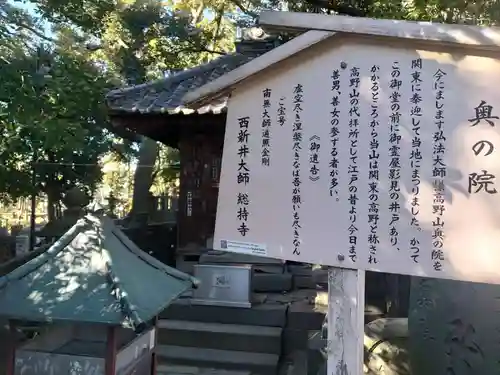 奥の院
今にまします弘法大師様を高野山奥の院より
関東に奉迎して当地にまつり
この御堂の前に御霊屋影見の井戸あり、かつて
かかるところから当山は関東の高野と称され
高野山の代拝所として江戸の昔より今日まで
善男、善女の参する者が多い。
《御遺告》
虚空尽き涅槃尽きなば吾が願いも尽きん
ご宝号
南無大師遍照金剛
西新井大師 総持寺